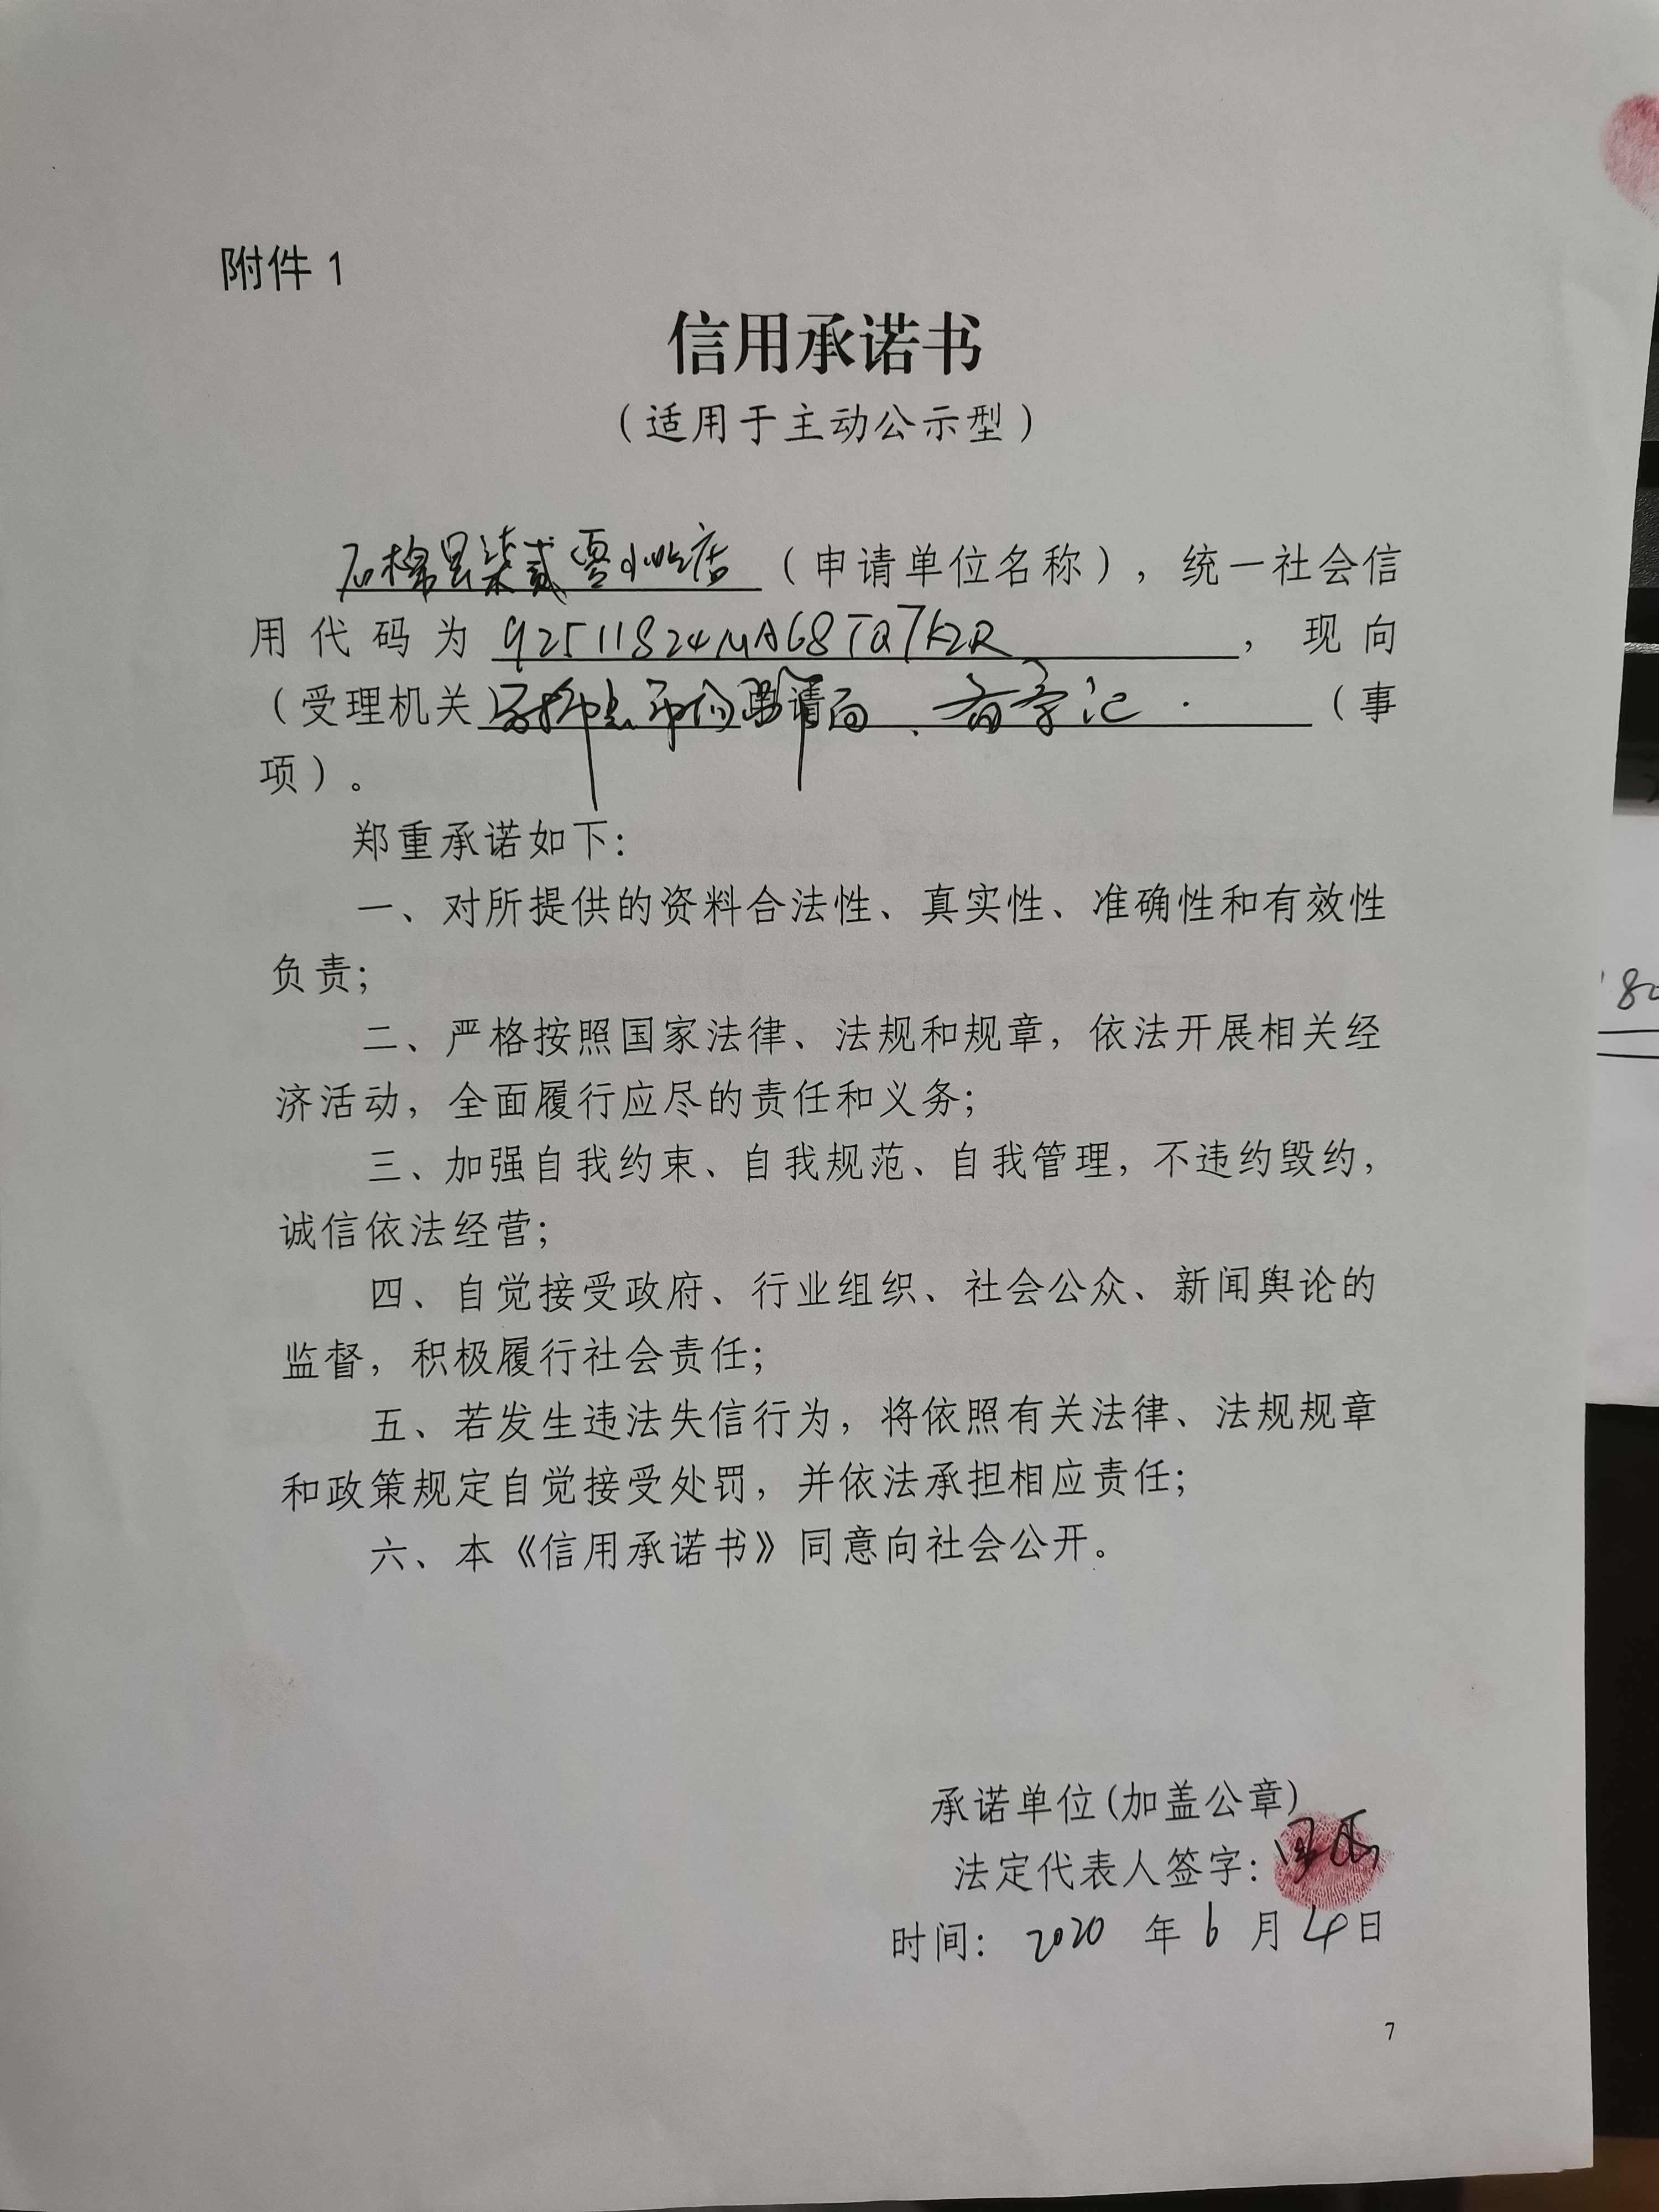 附件 1
信用承诺书
（适用于主动公示型）
石棉县柒贰零小吃店（申请单位名称），统一社会信
用代码为 92511824MA68TQ7K2R ，现向
（受理机关） 申请 （事
项）。
郑重承诺如下：
一、对所提供的资料合法性、真实性、准确性和有效性
负责；
二、严格按照国家法律、法规和规章，依法开展相关经
济活动，全面履行应尽的责任和义务；
三、加强自我约束、自我规范、自我管理，不违约毁约，
诚信依法经营；
四、自觉接受政府、行业组织、社会公众、新闻舆论的
监督，积极履行社会责任；
五、若发生违法失信行为，将依照有关法律、法规规章
和政策规定自觉接受处罚，并依法承担相应责任；
六、本《信用承诺书》同意向社会公开。
承诺单位(加盖公章)
法定代表人签字：
时间： 2020 年 6 月 4 日
7